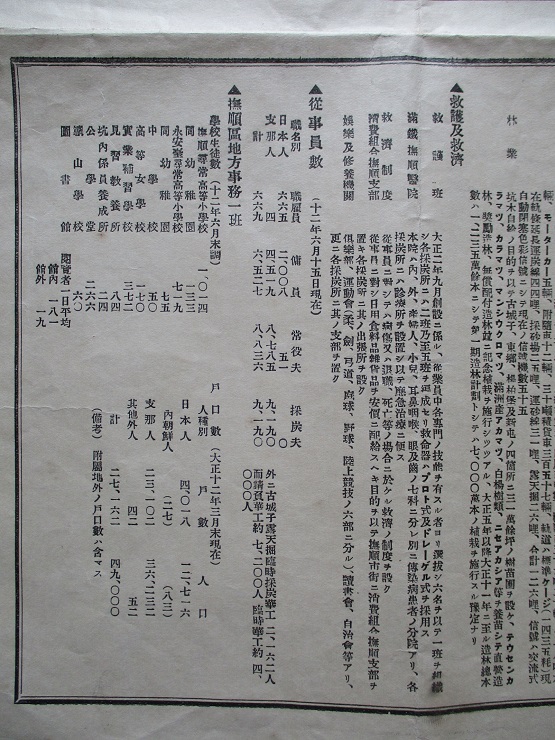 輛、モーターカー五輛、附隨車十二輛、三十噸積貨車三百五十七輛、軌道ハ標準ゲージ、(一四三五粍)現
在軌條延長運炭線四四哩、採砂場二五哩、運砂線三一哩、露天掘二六哩、合計一二六哩、信號ハ交流式
自動閉塞色彩信號ニシテ現在ノ信號機數三十五
林業　坑木自給ノ目的ヲ以テ古城子、東鄉、楊柏堡及新屯ノ四箇所ニ三一萬餘坪ノ樹苗圃ヲ設ケ、テウセンカ
ラマツ、カラマツ、マンシウクロマツ、滿洲產アカマツ、白楊樹類、ニセアカシア等ヲ養苗シテ直營造
林、獎勵造林、無償配付造林竝ニ記念植栽ヲ施行シツツアル、大正五年以降大正十一年ニ至ル造林總本
數ハ一、二三五萬餘本ニシテ第一期造林計劃トシテハ七、〇〇〇萬本ノ植栽ヲ施行スル豫定ナリ
▲救護及救濟
救護班　大正二年九月創設ニ係ル、從業員中各專門ノ技能ヲ有スル者ヨリ選拔シ六名ヲ以テ一班ヲ組織
シ各採炭所ニハ二班乃至五班ヲ編成セリ救命器ハプロト式及ドレーゲル式ヲ採用ス
滿鐵撫順醫院　本院ハ內、外、產婦人、小兒、耳鼻咽喉、眼及齒ノ七科ニ分レ別ニ傳染病患者ノ分院アリ、各
採炭所ニハ診療所ヲ設置シ以テ應急治療ニ便ス
救濟制度　從事員ニ對シテハ病傷又ハ退職、死亡等ノ場合ニ於ケル救濟ノ制度ヲ設ク
消費組合撫順支部　從事員ニ對スル日用食料品雜貨品ヲ安價ニ配給スヘキ目的ヲ以テ撫順市街ニ消費組合撫順支部ヲ
置キ各採炭所ニ其ノ出張所ヲ設ク
娛樂及修養機關　俱樂部、運動會(柔、劍、弓道、庭球、野球、陸上競技ノ六部ニ分ル)、讀書會、自治會等アリ、
更ニ各採炭所ニ其ノ支部ヲ置ク
▲從事員數 (十二年六月十五日現在)
職名別　職雇員　傭員　常役夫　採炭夫
日本人　六六五　二、〇〇八　五一
支那人　四　四、五一九　八、七八五　九、一九〇
計　六六九　六、五二七　八、八三六　九、一九〇
外ニ古城子露天掘臨時採炭華工二、一六二人
而請負華工約七、二〇〇人臨時華工約四、
〇〇〇人
▲撫順區地方事務一班
學校生徒數 (十二年六月末調)
撫順尋常高等小學校　一、〇一四
同幼稚園　一三三
永安臺尋常高等小學校　七一九
同幼稚園　一五〇
中學校　五七五
高等女學校　三七二
實業補習學校　一七〇
見習敎養所　八四
坑內係員養成所　二四
公學堂　二六六
瀋山學校
圖書館　閱覽者一日平均　館內一八一　館外一九
戶口數 (大正十二年三月末現在)
人種別　戶數　人口
日本人　四、〇一八　一二、七一六
(內朝鮮人　(二七)　(八三)
支那人　二三、一〇二　三六、二三二
其他外人　四二　五二
計　二七、一六二　四九、〇〇〇
(備考) 附屬地外ノ戶口數ハ含マス